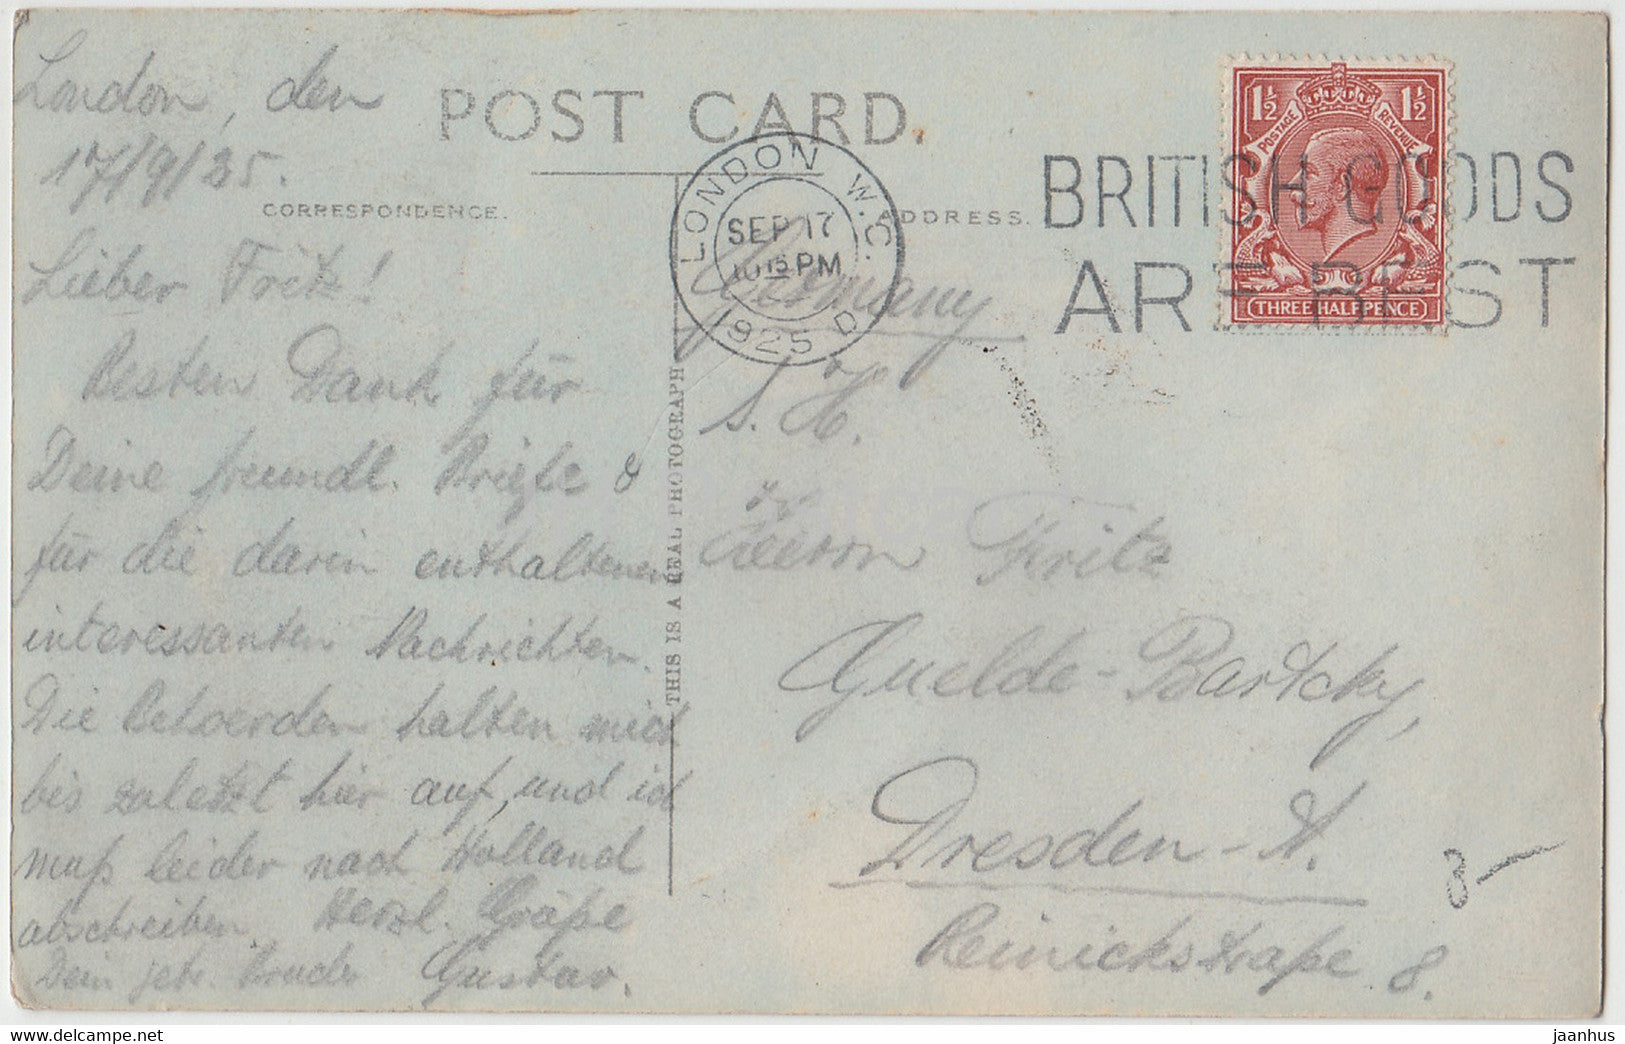 London, den
17/9/25.
POST CARD.
CORRESPONDENCE.
ADDRESS.
Lieber Fritz!
Besten Dank für
Deine freundl. Briefe &
für die darin enthaltenen
interessanten Nachrichten.
Die Behoerden halten mich
bis zuletzt hier auf, und ich
muß leider nach Holland
abschreiben. Herzl. Grüße
Dein Bruder Gustav.
THIS IS A REAL PHOTOGRAPH
LONDON W.C.
SEP 17
10 15 PM
1925
D
BRITISH GOODS
ARE BEST
1½ 1½
POSTAGE REVENUE
THREE HALFPENCE
Germany
S. H.
Herrn Fritz
Guelde-Bartcky,
Dresden-A.
Reinickstraße 8.
8-
jaanhus